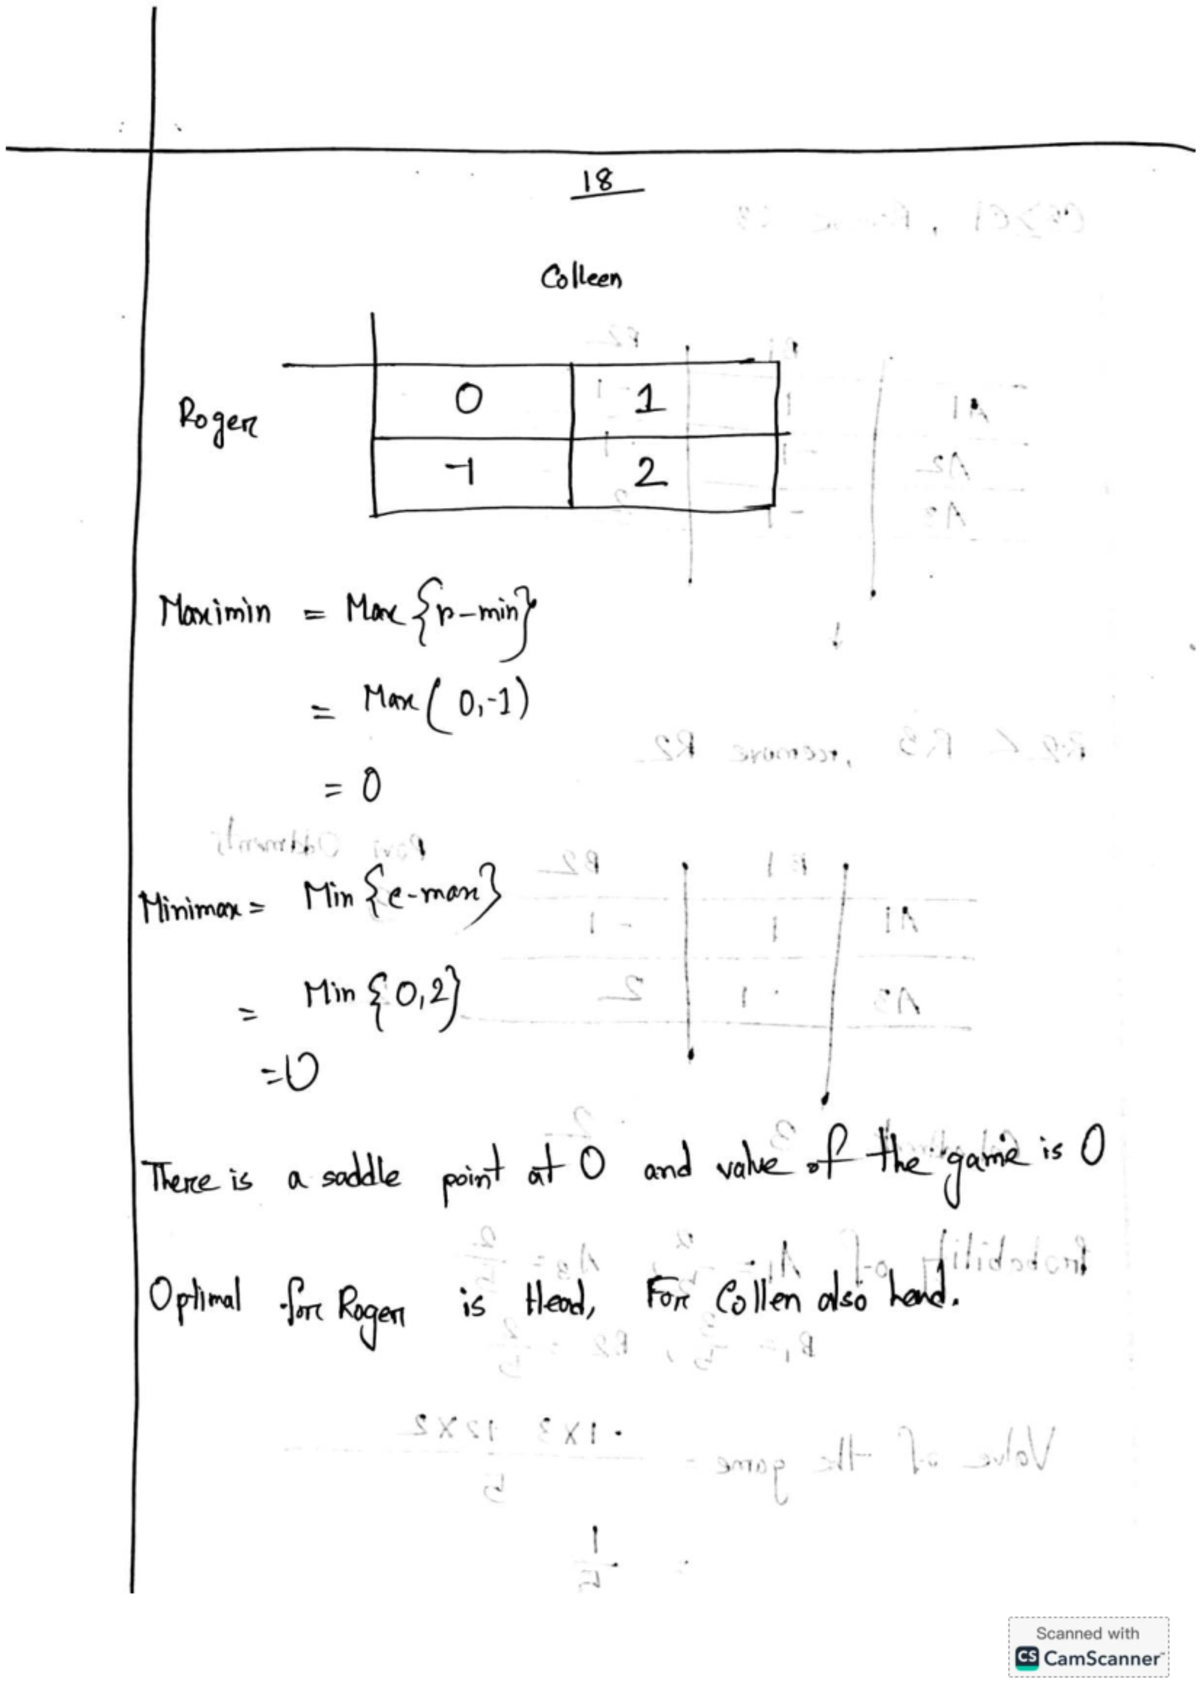 18
Colleen
Roger
0 1
-1 2
Maximin = Max {r-min}
= Max (0,-1)
= 0
Minimax = Min {c-max}
= Min {0,2}
=0
There is a saddle point at 0 and value of the game is 0
Optimal for Roger is Head, For Collen also head.
Scanned with
CS CamScanner